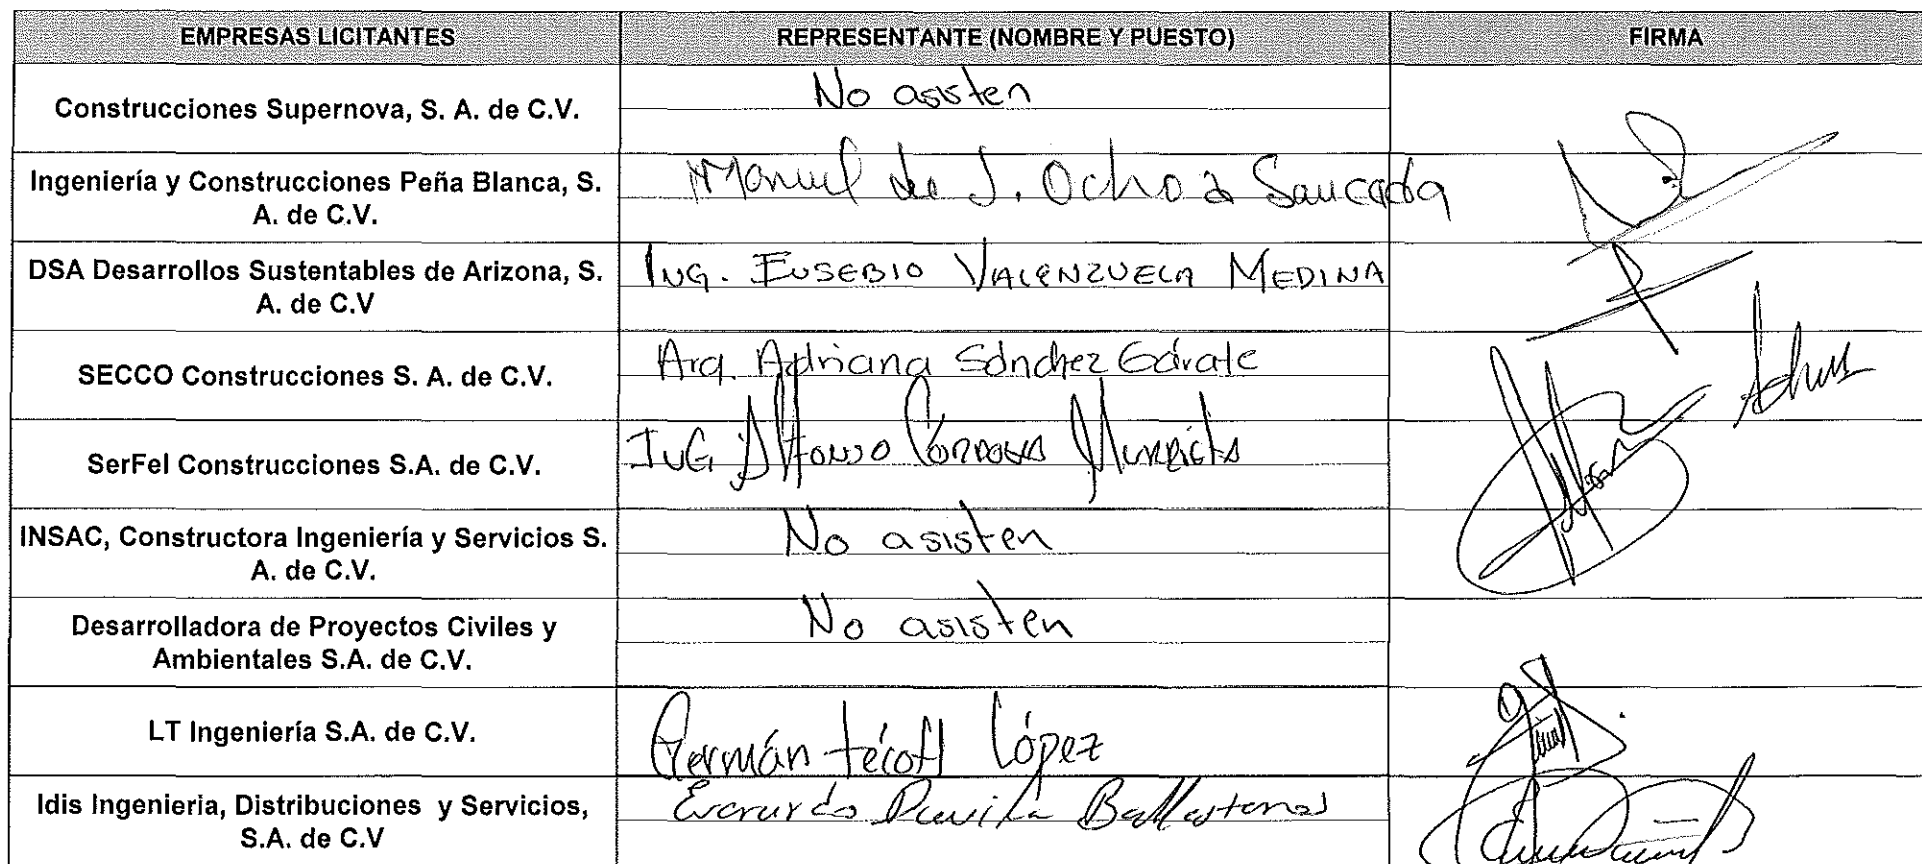 EMPRESAS LICITANTES REPRESENTANTE (NOMBRE Y PUESTO) FIRMA
Construcciones Supernova, S. A. de C.V.
No asisten
Ingeniería y Construcciones Peña Blanca, S.
A. de C.V.
Manuel de J. Ochoa Sauceda
DSA Desarrollos Sustentables de Arizona, S.
A. de C.V
ING. EUSEBIO VALENZUELA MEDINA
SECCO Construcciones S. A. de C.V.
Arq. Adriana Sánchez Gárate
SerFel Construcciones S.A. de C.V.
ING. Alfonso Córdova Murrieta
INSAC, Constructora Ingeniería y Servicios S.
A. de C.V.
No asisten
Desarrolladora de Proyectos Civiles y
Ambientales S.A. de C.V.
No asisten
LT Ingeniería S.A. de C.V.
Germán López
Idis Ingenieria, Distribuciones y Servicios,
S.A. de C.V
Davila